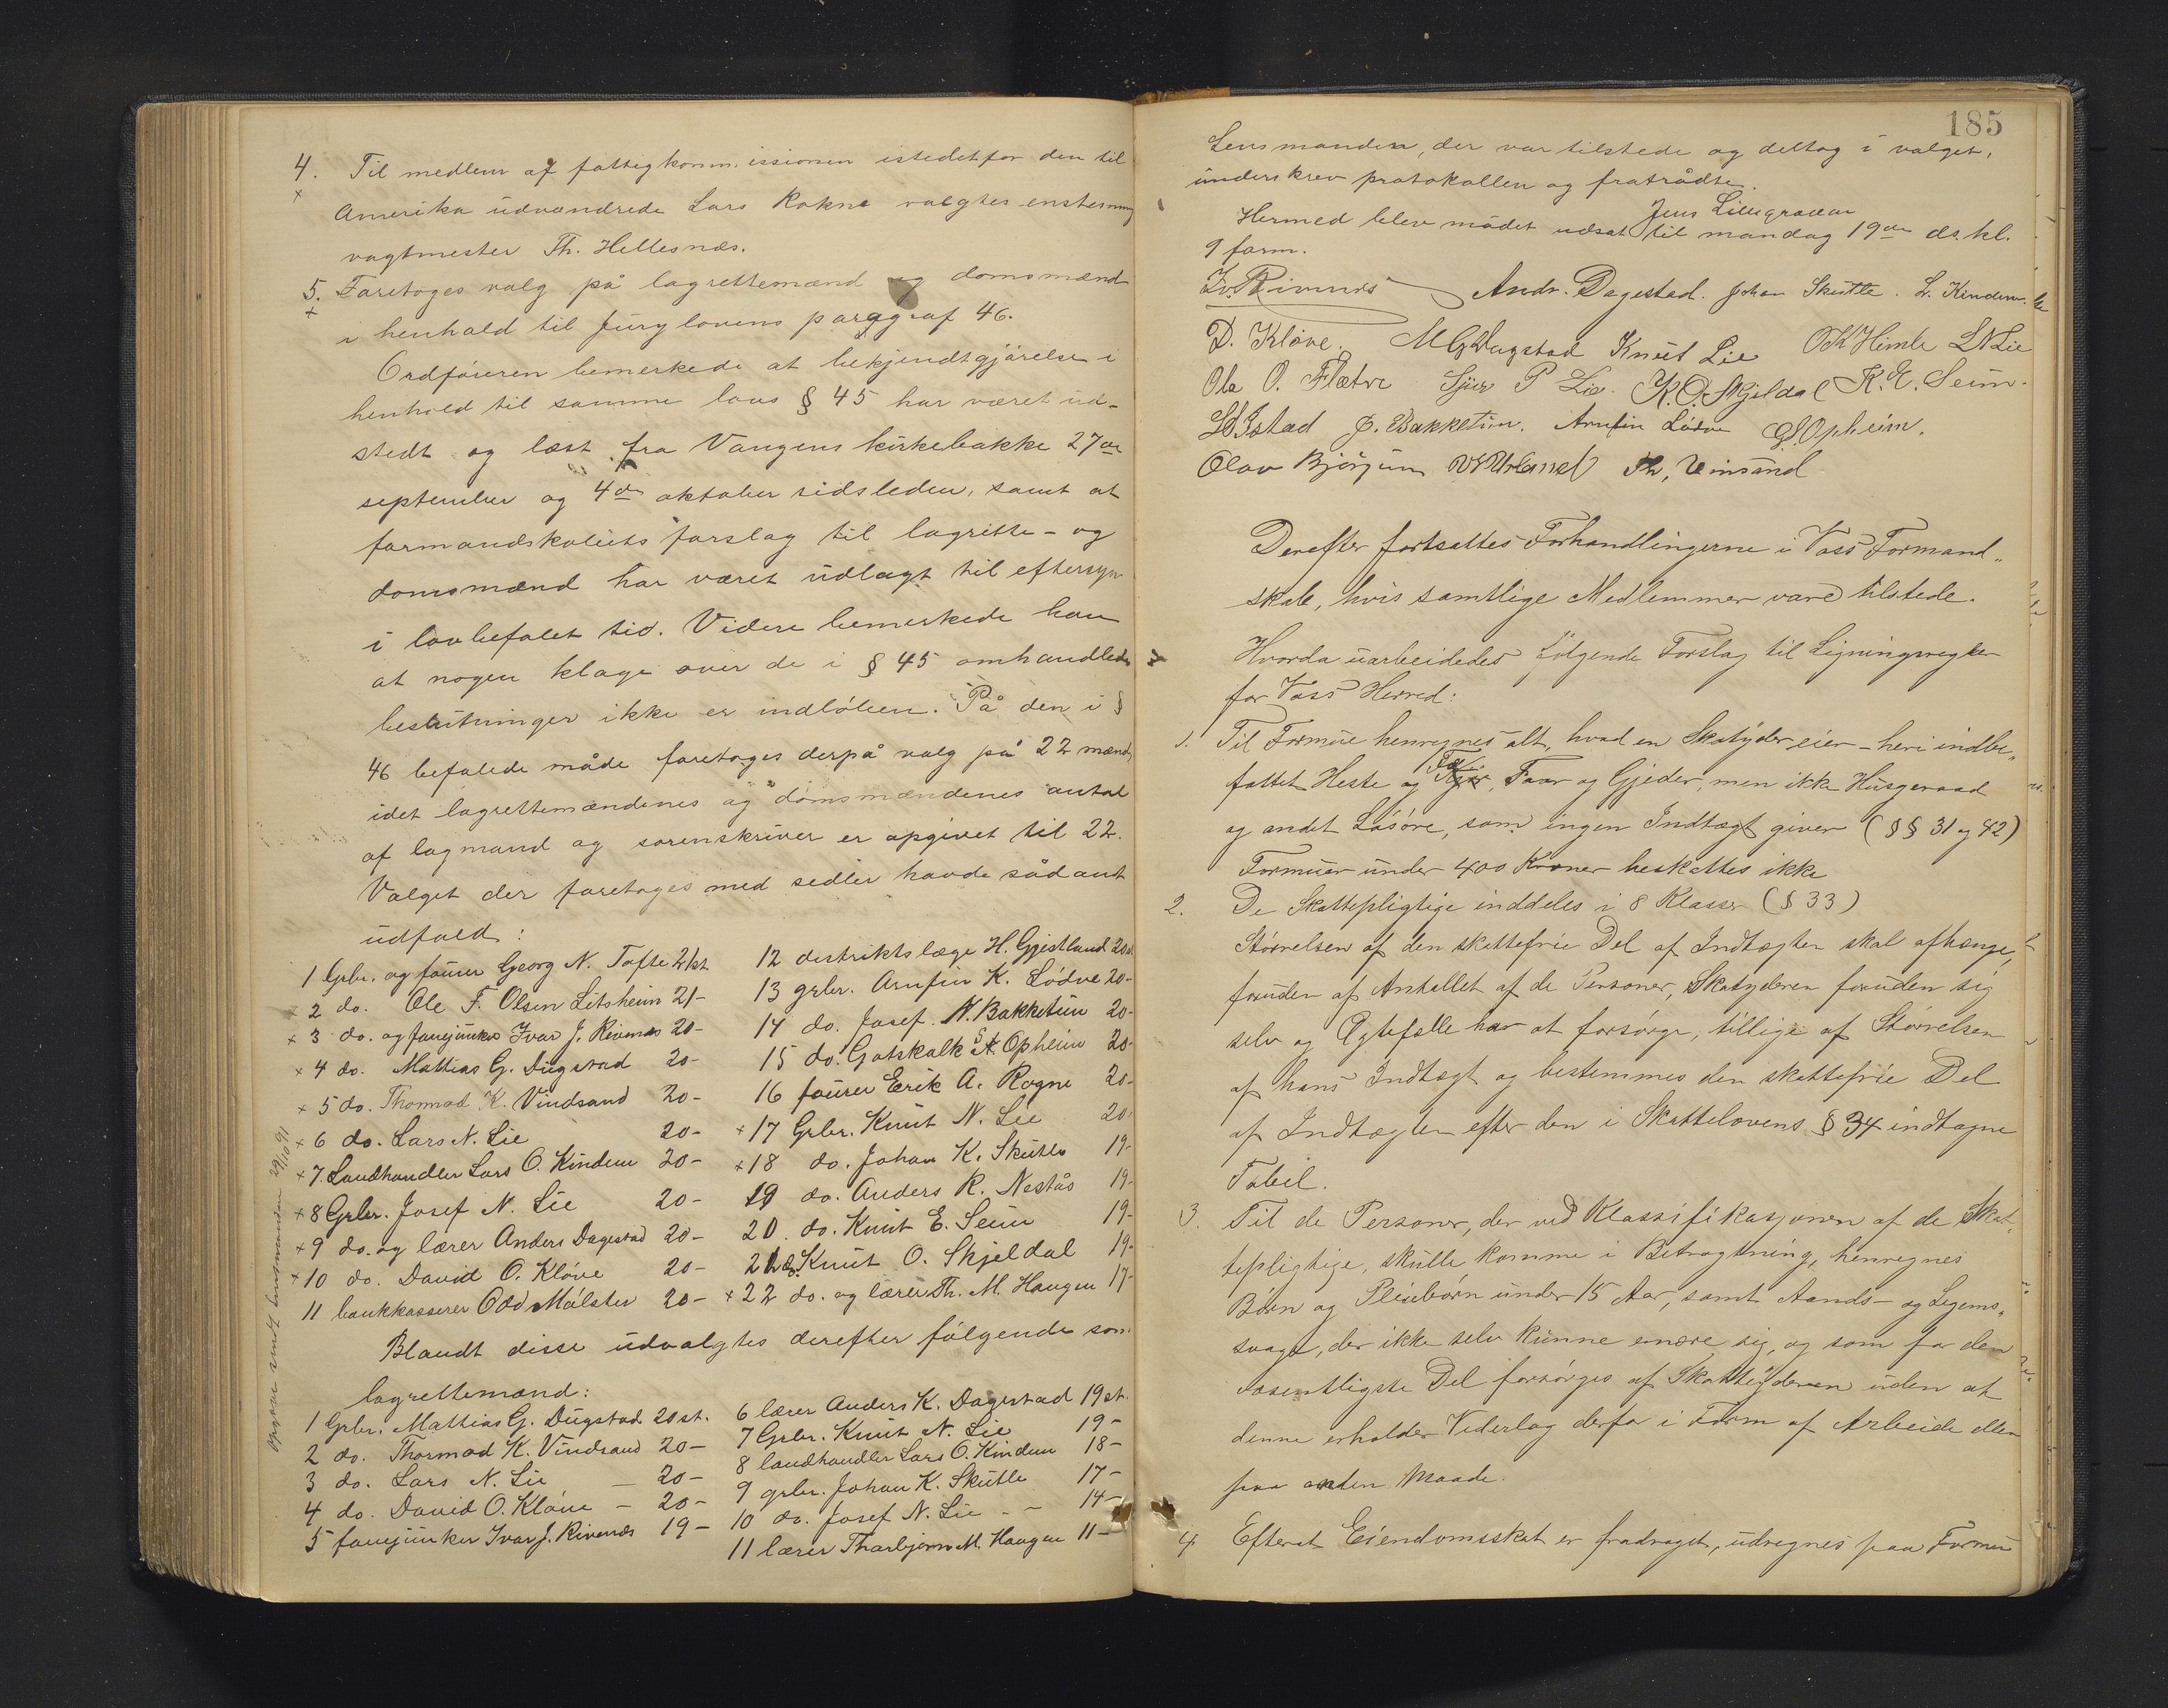 4. Til medlem af fattigkommissionen istedetfor den til
Amerika udvandrede Lars Rokne valgtes enstemmig
vagtmester Th. Hellesnæs.
5. Foretoges valg på lagrettemænd og domsmænd
i henhold til Jurylovens paragraf 46.
Ordføreren bemerkede at bekjendtgjørelse i
henhold til samme lovs § 45 har været ud-
stedt og læst fra Vangens kirkebakke 27de
september og 4de oktober sidsleden, samt at
formandskabets forslag til lagrette- og
domsmænd har været udlagt til eftersyn
i lovbefalet tid. Videre bemerkede han
at nogen klage over de i § 45 omhandlede
beslutninger ikke er indløben. På den i §
46 befalede måde foretoges derpå valg på 22 mænd,
idet lagrettemændenes og domsmændenes antal
af lagmand og sorenskriver er opgivet til 22.
Valget der foretoges med sedler havde sådant
udfald:
1 Grbr. og fourer Georg N. Tofte 21 st.
× 2 do. Ole F. Olsen Litsheim 21-
× 3 do. og fanejunker Ivar J. Rivenæs 20-
× 4 do. Mattias G. Dugstad 20-
× 5 do. Thormod K. Vindsand 20-
× 6 do. Lars N. Lie 20-
× 7. Landhandler Lars O. Kindem 20-
× 8 Grbr. Josef N. Lie 20-
× 9 do. og lærer Anders Dagestad 20-
× 10 do. David O. Kløve 20-
11 bankkasserer Odd Mølster 20-
12 destriktslæge H. Gjestland 20 st
13 grbr. Arnfin K. Lødve 20-
14 do. Josef N. Bakketun 20-
15 do. Gotskalk S. Opheim 20-
16 fourer Eerik A. Rogne 20-
× 17 Grbr. Knut N. Lie 20-
× 18 do. Johan K. Skutle 19-
19 do. Anders R. Nestås 19-
20. do. Knut E. Seim 19-
21 do. Knut O. Skjeldal 19-
× 22 do. og lærer Th. M. Haugen 17-
Blandt disse udvalgtes derefter følgende som
lagrettemænd:
1 Grbr. Mattias G. Dugstad 20 st.
2 do. Thormod K. Vindsand 20-
3 do. Lars N. Lie — 20-
4 do. David O. Kløve - 20-
5 fanejunker Ivar J. Rivenæs 19-
6 lærer Anders K. Dagestad 19 st.
7 Grbr. Knut N. Lie 19-
8 landhandler Lars O. Kindem 18-
9 grbr. Johan K. Skutle 17-
10 do. Josef N. Lie - 14-
11 lærer Thorbjørn M. Haugen 11-
185
Lensmanden, der var tilstede og deltog i valget,
underskrev protokollen og fratrådte.
Jens Lillegraven
Hermed blev mødet udsat til mandag 19de ds. kl.
9 form.
Iv. Rivenæs Andr. Dagestad. Johan Skutle. L. Kindem.
D. Kløve. M G Dugstad Knut Lie O K Himle L N Lie
Ole O. Flatre Sjur P Lie. K. O. Skjeldal K. E. Seim.
J. Bakketun. Arnfin Lødve G. S. Opheim.
Olav Bjørgum Th. Vinsand
Derefter fortsattes Forhandlingerne i Voss Formand-
skab, hvis samtlige Medlemmer vare tilstede.
Hvorda uarbeidedes følgende Forslag til Ligningsregler
for Voss Herred:
1. Til Formue henregnes alt, hvad en Skatyder eier - heri indbe-
fattet Heste og Kjør, Faar og Gjeder, men ikke Husgeraad
og andet Løsøre, som ingen Indtægt giver (§§ 31 og 42)
Formuer under 400 Kroner beskattes ikke
2. De Skattepligtige inddeles i 8 Klasser (§ 33)
Størrelsen af den skattefrie Del af Indtægten skal afhænge,
foruden af Antallet af de Personer, Skatyderen foruden sig
selv og Ægtefælle har at forsørge, tillige af Størrelsen
af hans Indtægt og bestemmes den skattefrie Del
af Indtægten efter den i Skattelovens § 34 indtagne
Tabel.
3. Til de Personer, der ved Klassifikasjonen af de Skat-
tepligtige, skulle komme i Betragtning, henregnes
Børn og Pleiebørn under 15 Aar, samt Aands- og Legems-
svage, der ikke selv kunne ernære sig, og som for den
væsentligste Del forsørges af Skatteyderen uden at
denne erholder Vederlag derfor i Form af Arbeide eller
paa anden Maade.
4 Efterat Eiendomsskat er fradraget, udregnes paa Formue